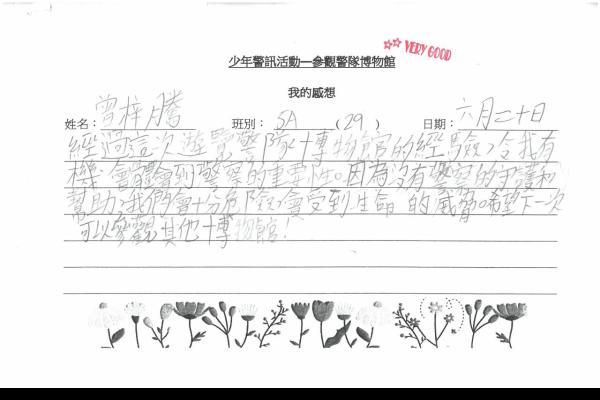 VERY GOOD
少年警訊活動—參觀警隊博物館
我的感想
姓名：曾梓騰 班別：5A (29) 日期：六月二十日
經過這次遊覽警隊博物館的經驗，令我有
機會體會到警察的重要性。因為沒有警察的守護和
幫助，我們會十分危險，會受到生命的威脅。希望下一次
可以參觀其他博物館！